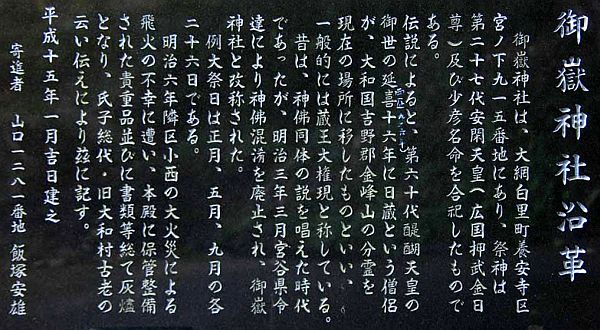 御嶽神社沿革
御嶽神社は、大網白里町養安寺区
宮ノ下九一五番地にあり、祭神は
第二十七代安閑天皇(広国押武金日
尊)及び少彦名命を合祀したもので
ある。
伝説によると、第六十代醍醐天皇の
御世の延喜十六年に日蔵という僧侶
が、大和国吉野郡金峰山の分霊を
現在の場所に移したものといい、
一般的には蔵王大権現と称している。
昔は、神佛同体の説を唱えた時代
であったが、明治三年三月宮谷県令
達により神佛混淆を廃止され、御嶽
神社と改称された。
例大祭日は正月、五月、九月の各
二十六日である。
明治六年隣区小西の大火災による
飛火の不幸に遭い、本殿に保管整備
された貴重品並びに書類等総て灰燼
となり、氏子総代・旧大和村古老の
云い伝えにより茲に記す。
平成十五年一月吉日建之
寄進者 山口一二八一番地 飯塚安雄